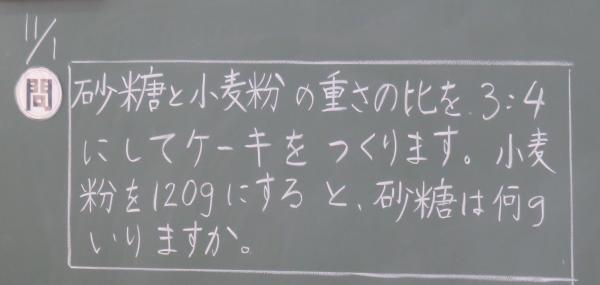 11/1
問
砂糖と小麦粉の重さの比を3:4
にしてケーキをつくります。小麦
粉を120gにすると、砂糖は何g
いりますか。